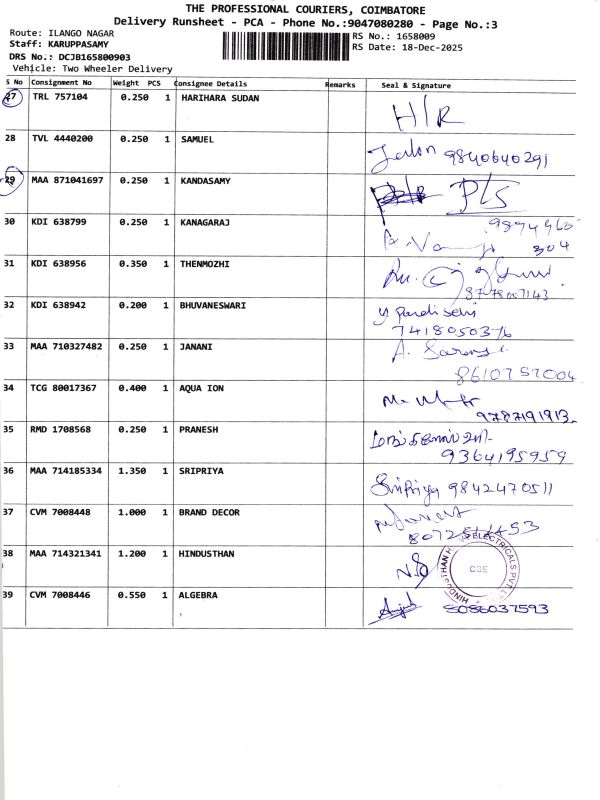 THE PROFESSIONAL COURIERS, COIMBATORE
Delivery Runsheet - PCA - Phone No.:9047080280 - Page No.:3
Route: ILANGO NAGAR RS No.: 1658009
Staff: KARUPPASAMY RS Date: 18-Dec-2025
DRS No.: DCJB165800903
Vehicle: Two Wheeler Delivery
S No Consignment No Weight PCS Consignee Details Remarks Seal & Signature
27 TRL 757104 0.250 1 HARIHARA SUDAN H/R
28 TVL 4440200 0.250 1 SAMUEL 9840640291
29 MAA 871041697 0.250 1 KANDASAMY PLS
30 KDI 638799 0.250 1 KANAGARAJ
304
31 KDI 638956 0.350 1 THENMOZHI
8778007143
32 KDI 638942 0.200 1 BHUVANESWARI
7418050376
33 MAA 710327482 0.250 1 JANANI
8610757004
34 TCG 80017367 0.400 1 AQUA ION
9787191913
35 RMD 1708568 0.250 1 PRANESH
9364195959
36 MAA 714185334 1.350 1 SRIPRIYA Sripriya 9842470511
37 CVM 7008448 1.000 1 BRAND DECOR
38 MAA 714321341 1.200 1 HINDUSTHAN CBE
39 CVM 7008446 0.550 1 ALGEBRA 8086037593